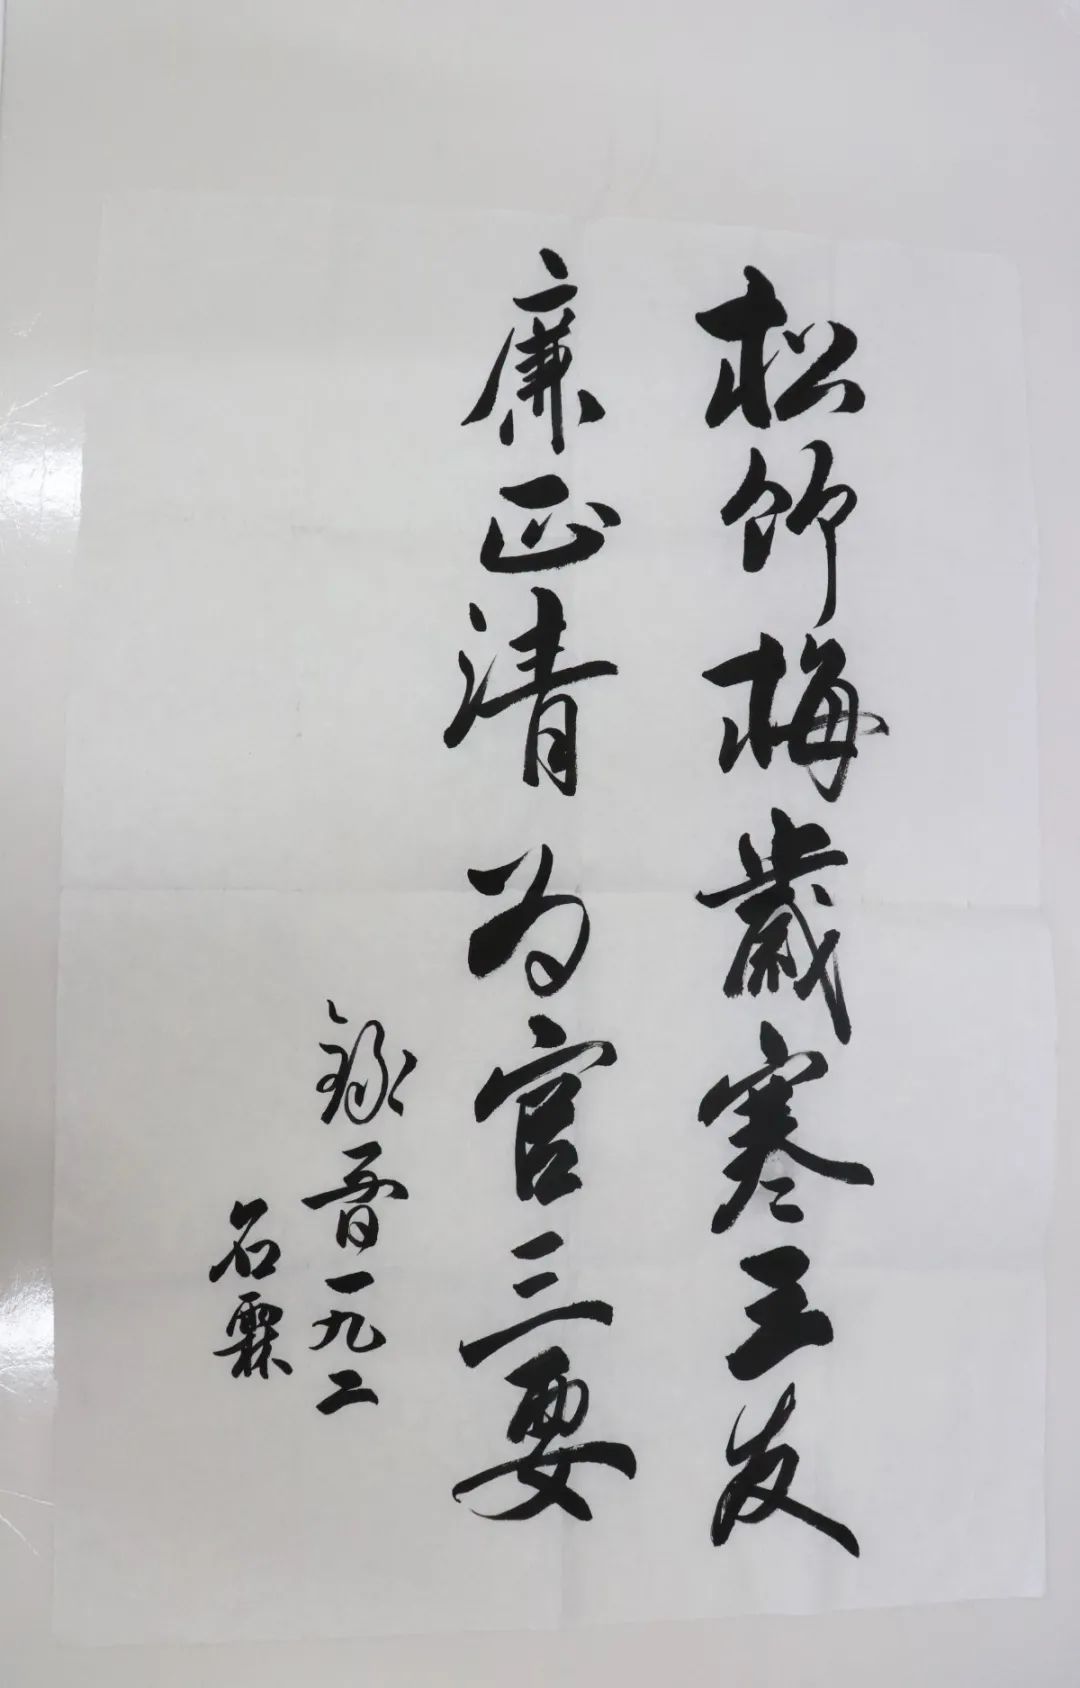 松竹梅歲寒三友
廉正清为官三要
錄晋一九二
石霖